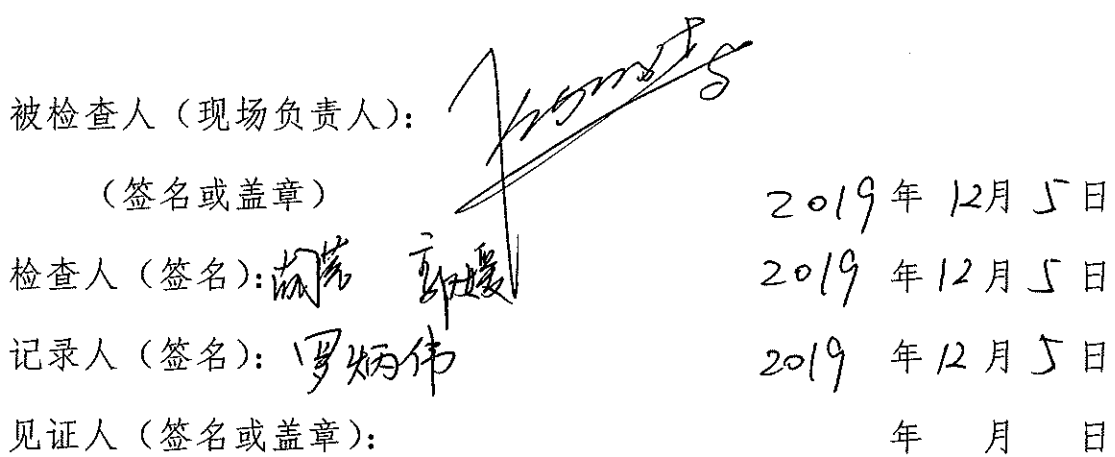 被检查人（现场负责人）：
（签名或盖章） 2019年 12月 5日
检查人（签名）： 郭媛 2019 年 12月 5 日
记录人（签名）：罗炳伟 2019 年 12月 5 日
见证人（签名或盖章）： 年 月 日